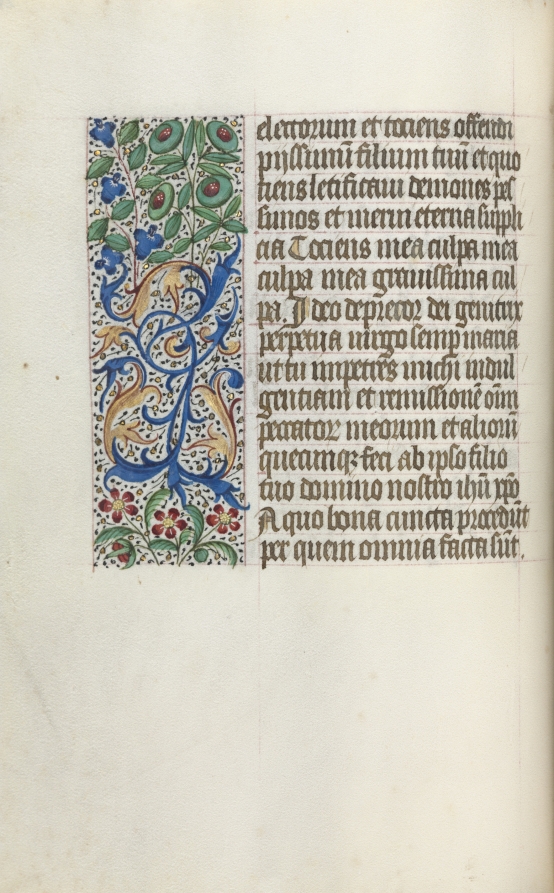 electorum et tociens offendi
pijssimū filium tuū et quo
tiens letificaui demones pes
simos et merui eterna suppli
cia Tociens mea culpa mea
culpa mea grauissima cul
pa. Ideo deprecor dei genitrix
perpetua uirgo semp maria
ut tu impetres michi indul
gentiam et remissionē om̄
peccatoꝝ meorum et aliorū
quecumqꝫ feci ab ipso filio
tuo domino nostro ihū xp̄o
A quo bona cuncta procedūt
per quem omnia facta sūt.